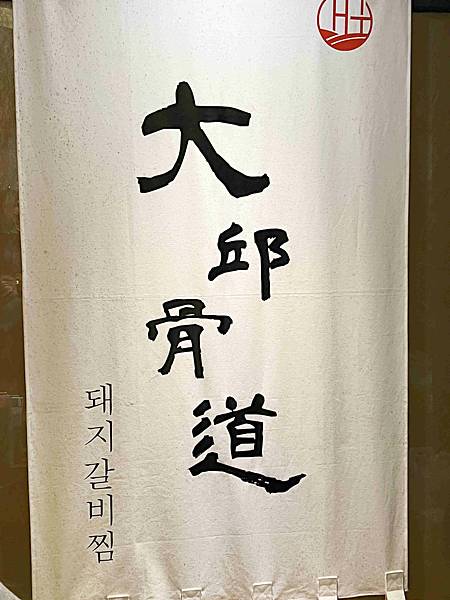 大邱骨道
돼지갈비찜